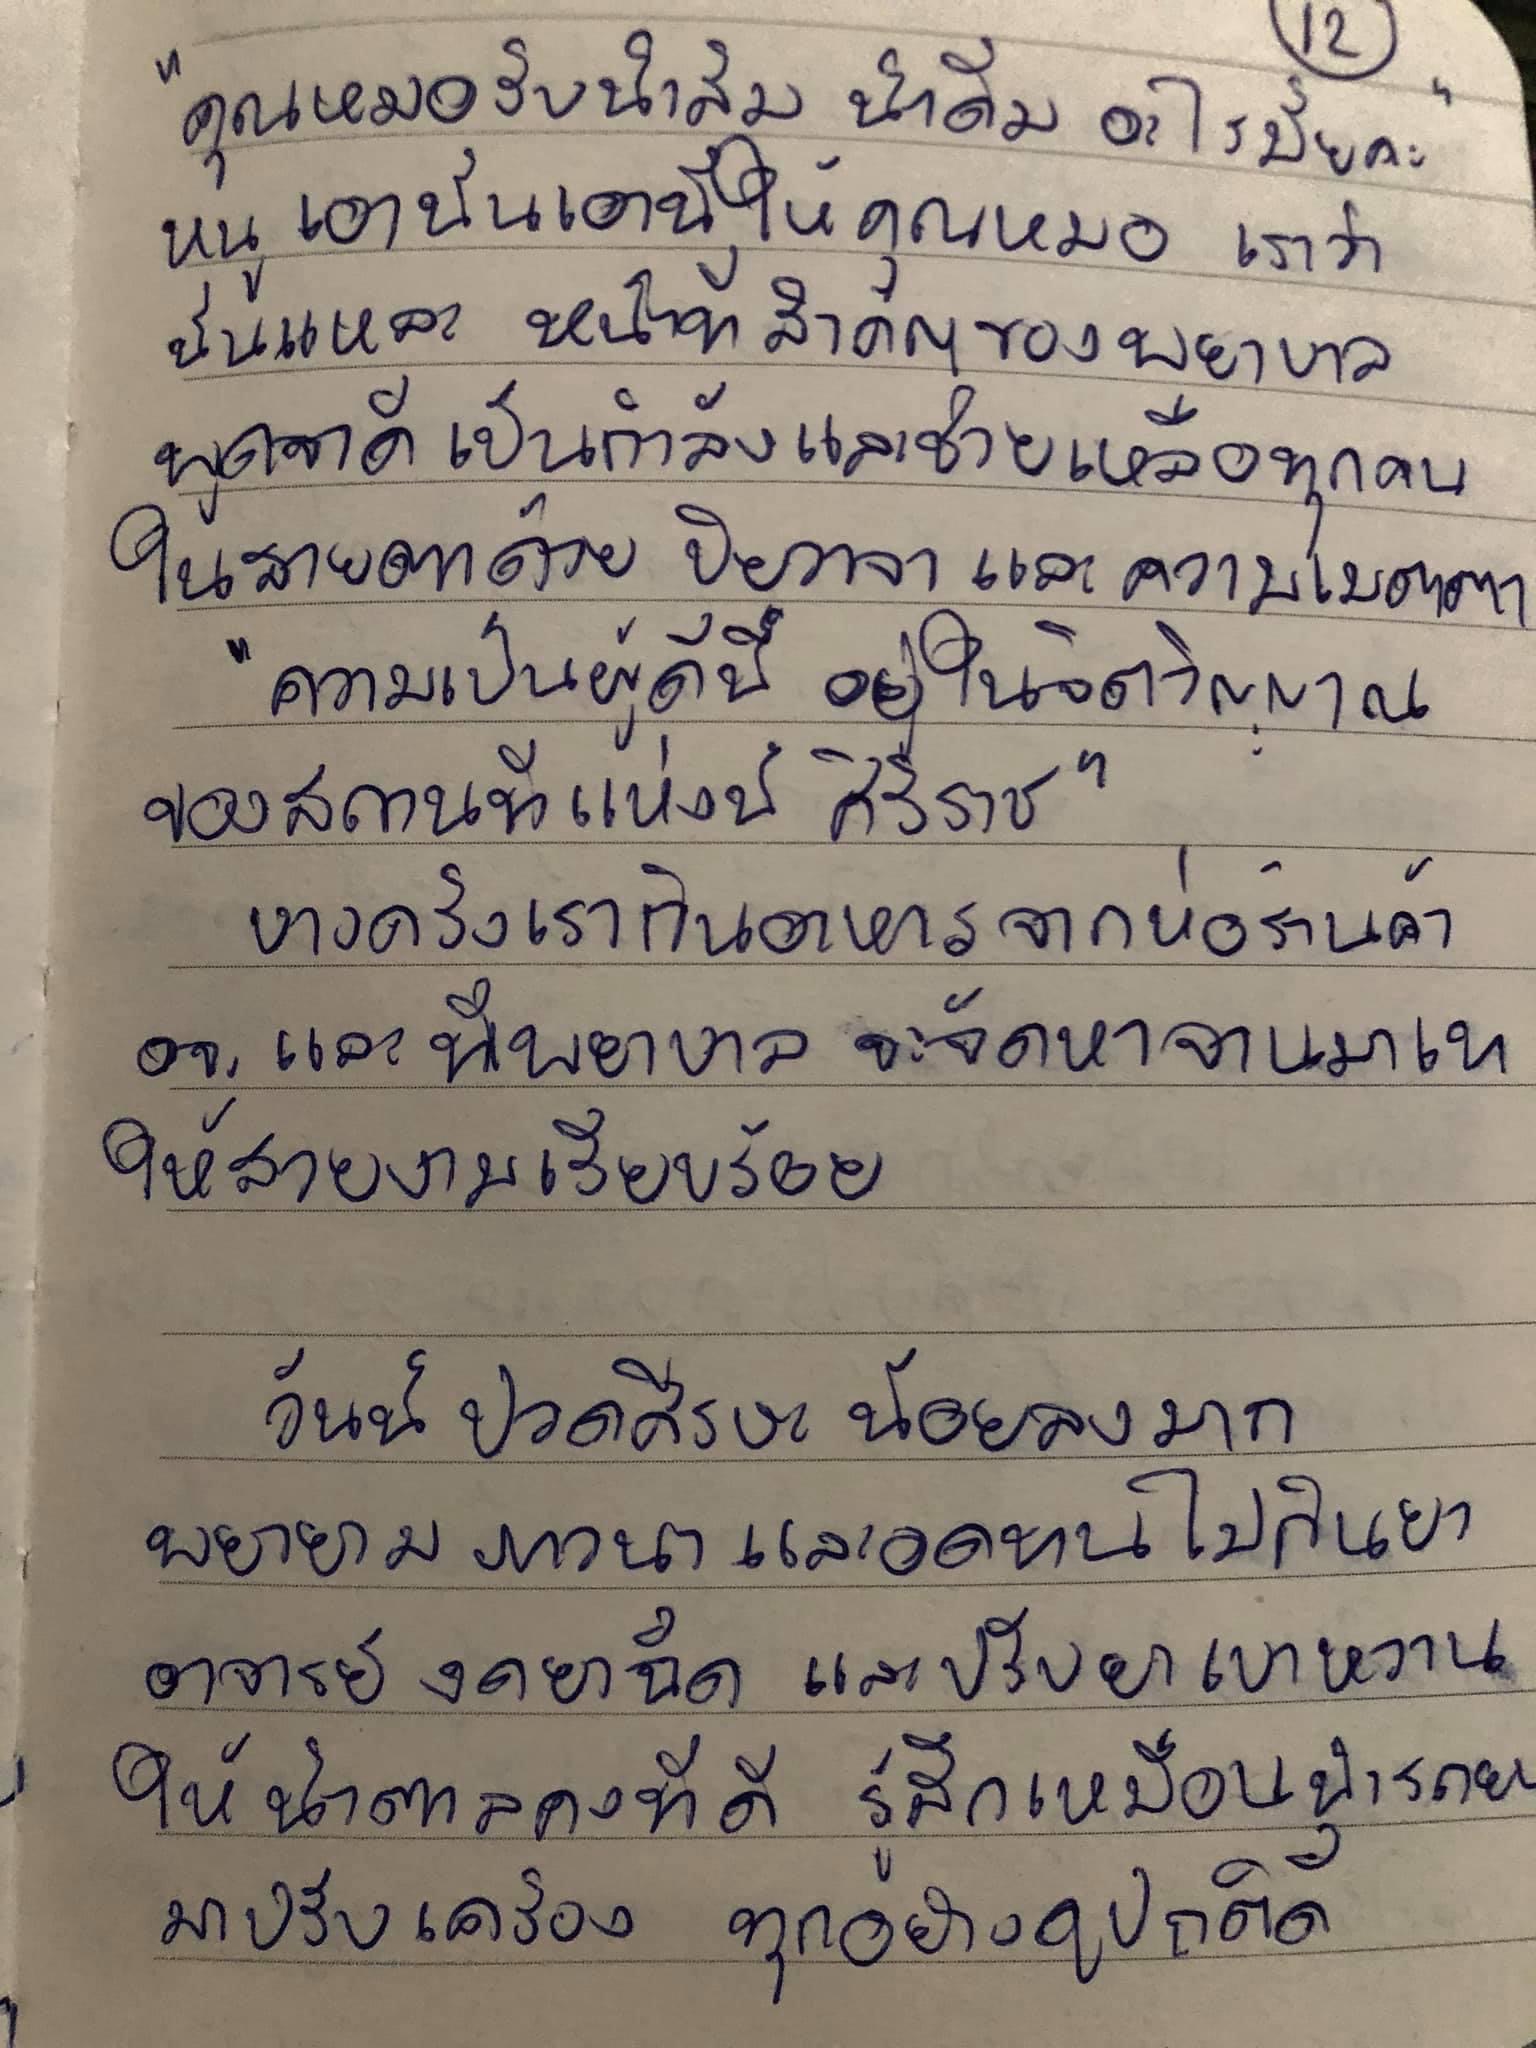 12
"คุณหมอรับน้ำส้ม น้ำดื่ม อะไรมั้ยคะ"
หนู เอานั่นเอานี่ให้คุณหมอ เราว่า
นั่นแหละ หน้าที่สำคัญของพยาบาล
พูดจาดี เป็นกำลังและช่วยเหลือทุกคน
ในสายตาด้วย ปิยวาจา และ ความเมตตา
"ความเป็นผู้ดีนี้ อยู่ในจิตวิญญาณ
ของสถานที่แห่งนี้ ศิริราช"
บางครั้งเรากินอาหารจากห่อร้านค้า
อจ. และ พี่พยาบาล จะจัดหาจานมาเท
ให้สวยงามเรียบร้อย
วันนี้ ปวดศีรษะ น้อยลงมาก
พยายาม ภาวนา และอดทนไม่กินยา
อาจารย์ งดยาฉีด และปรับยาเบาหวาน
ให้น้ำตาลคงที่ดี รู้สึกเหมือนนำรถยนต์
มาปรับเครื่อง ทุกอย่างดูปกติดี